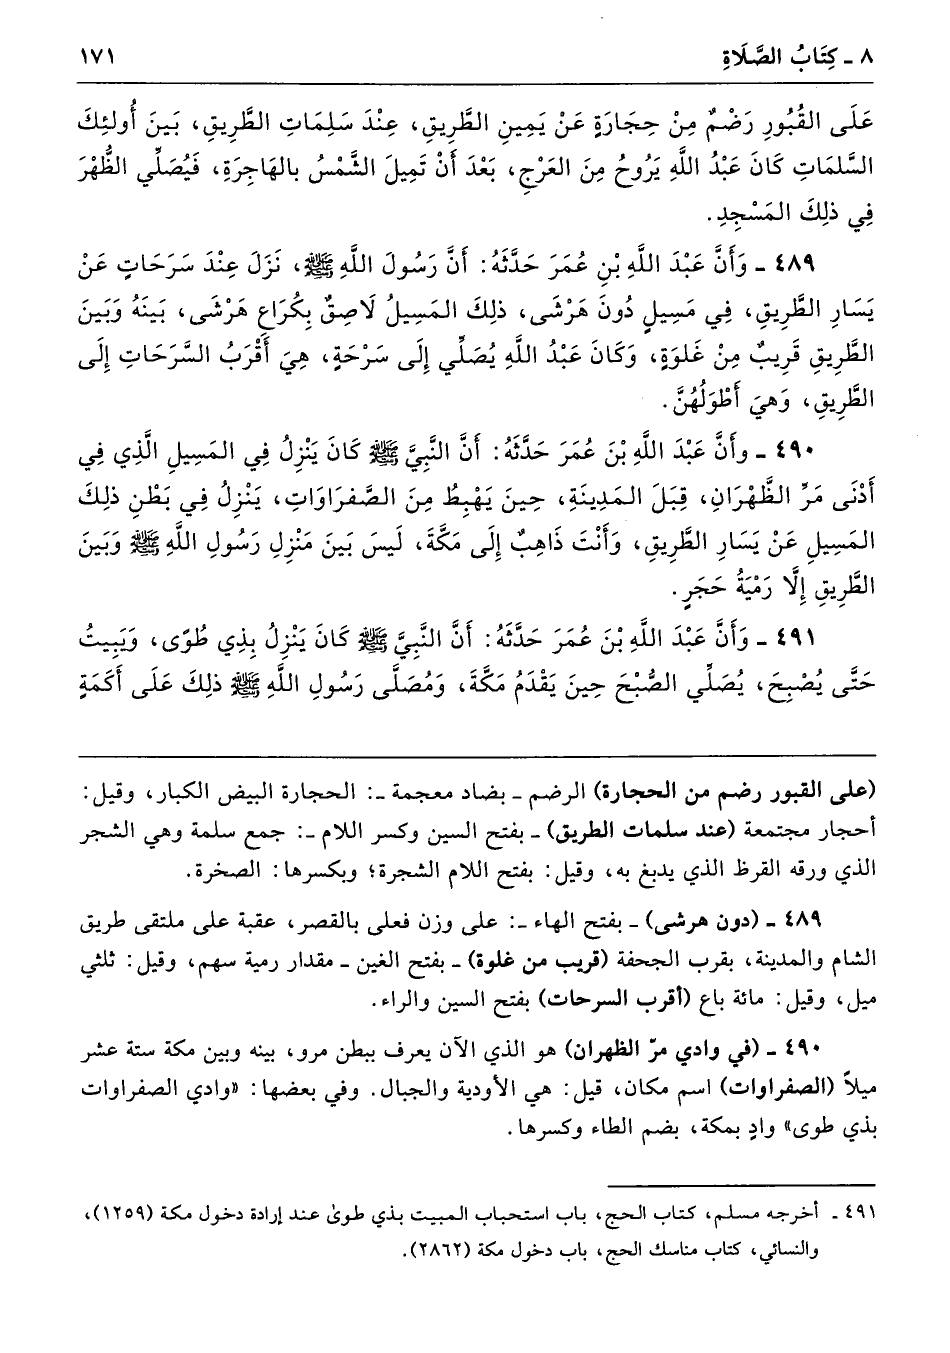 ٨ ـ كِتَابُ الصَّلَاةِ ١٧١
عَلَى القُبُورِ رَضْمٌ مِنْ حِجَارَةٍ عَنْ يَمِينِ الطَّرِيقِ، عِنْدَ سَلِمَاتِ الطَّرِيقِ، بَيْنَ أُولئِكَ
السَّلمَاتِ كَانَ عَبْدُ اللَّهِ يَرُوحُ مِنَ العَرْجِ، بَعْدَ أَنْ تَمِيلَ الشَّمْسُ بالهَاجِرَةِ، فَيُصَلِّي الظُّهْرَ
فِي ذلِكَ المَسْجِدِ.
٤٨٩ ـ وَأَنَّ عَبْدَ اللَّهِ بْنِ عُمَرَ حَدَّثَهُ: أَنَّ رَسُولَ اللَّهِ ﷺ، نَزَلَ عِنْدَ سَرَحَاتٍ عَنْ
يَسَارِ الطَّرِيقِ، فِي مَسِيلٍ دُونَ هَرْشَى، ذلِكَ المَسِيلُ لَاصِقٌ بِكُرَاعِ هَرْشَى، بَينَهُ وَبَينَ
الطَّرِيقِ قَرِيبٌ مِنْ غَلوَةٍ، وَكَانَ عَبْدُ اللَّهِ يُصَلِّي إِلَى سَرْحَةٍ، هِيَ أَقْرَبُ السَّرَحَاتِ إِلَى
الطَّرِيقِ، وَهيَ أَطْوَلُهُنَّ.
٤٩٠ ـ وأَنَّ عَبْدَ اللَّهِ بْنَ عُمَرَ حَدَّثَهُ: أَنَّ النَّبِيَّ ﷺ كَانَ يَنْزِلُ فِي المَسِيلِ الَّذِي فِي
أَدْنَى مَرِّ الظَّهْرَانِ، قِبَلَ المَدِينَةِ، حِينَ يَهْبِطُ مِنَ الصَّفرَاوَاتِ، يَنْزِلُ فِي بَطْنِ ذلِكَ
المَسِيلِ عَنْ يَسَارِ الطَّرِيقِ، وَأَنْتَ ذَاهِبٌ إِلَى مَكَّةَ، لَيسَ بَينَ مَنْزِلِ رَسُولِ اللَّهِ ﷺ وَبَينَ
الطَّرِيقِ إِلَّا رَمْيَةُ حَجَرٍ.
٤٩١ ـ وَأَنَّ عَبْدَ اللَّهِ بْنَ عُمَرَ حَدَّثَهُ: أَنَّ النَّبِيَّ ﷺ كَانَ يَنْزِلُ بِذِي طُوًى، وَيَبِيتُ
حَتَّى يُصْبِحَ، يُصَلِّي الصُّبْحَ حِينَ يَقْدَمُ مَكَّةَ، وَمُصَلَّى رَسُولِ اللَّهِ ﷺ ذلِكَ عَلَى أَكَمَةٍ
(على القبور رضم من الحجارة) الرضم ـ بضاد معجمة ـ: الحجارة البيض الكبار، وقيل:
أحجار مجتمعة (عند سلمات الطريق) ـ بفتح السين وكسر اللام ـ: جمع سلمة وهي الشجر
الذي ورقه القرظ الذي يدبغ به، وقيل: بفتح اللام الشجرة؛ وبكسرها: الصخرة.
٤٨٩ ـ (دون هرشى) ـ بفتح الهاء ـ: على وزن فعلى بالقصر، عقبة على ملتقى طريق
الشام والمدينة، بقرب الجحفة (قريب من غلوة) ـ بفتح الغين ـ مقدار رمية سهم، وقيل: ثلثي
ميل، وقيل: مائة باع (أقرب السرحات) بفتح السين والراء.
٤٩٠ ـ (في وادي مرّ الظهران) هو الذي الآن يعرف ببطن مرو، بينه وبين مكة ستة عشر
ميلاً (الصفراوات) اسم مكان، قيل: هي الأودية والجبال. وفي بعضها: «وادي الصفراوات
بذي طوى» وادٍ بمكة، بضم الطاء وكسرها.
٤٩١ ـ أخرجه مسلم، كتاب الحج، باب استحباب المبيت بذي طوىٰ عند إرادة دخول مكة (١٢٥٩)،
والنسائي، كتاب مناسك الحج، باب دخول مكة (٢٨٦٢).